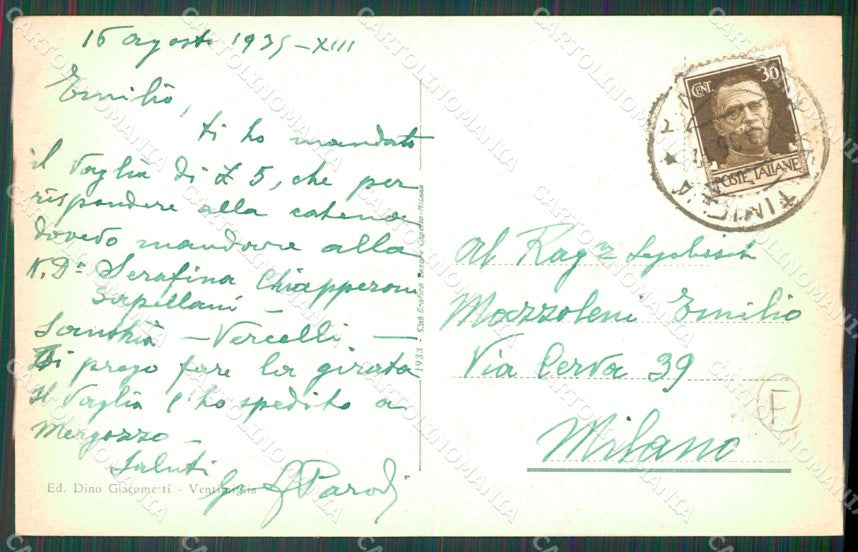 16 agosto 1935-XIII
Emilio,
ti ho mandato
il vaglia di £ 5, che per
rispondere alla catena
dovevo mandare alla
N. Da Serafina Chiapperoni
Sapellani -
- Vercelli -
Ti prego fare la girata
Il vaglia l'ho spedito a
Mergozzo -
Saluti
Parodi
Ed. Dino Giacometti - Ventimiglia
1933 - Milano
CENT. 30
POSTE ITALIANE
Al Rag
Mazzoleni Emilio
Via Cerva 39
Milano
F
CARTOLINOMANIA